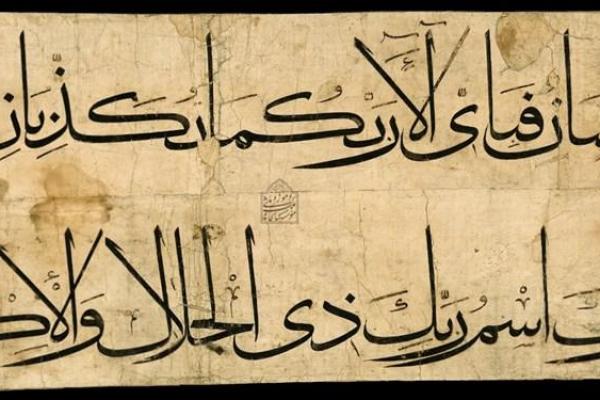 سان فبأی آلاء ربکما تکذبان
ك اسم ربك ذی الجلال والاک